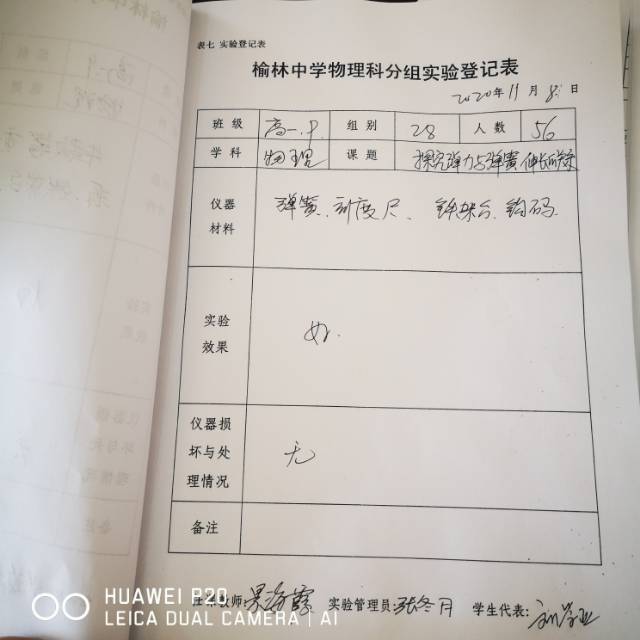 表七 实验登记表
榆林中学物理科分组实验登记表
2020年11月8日
班级 高一.9 组别 28 人数 56
学科 物理 课题 探究弹力与弹簧伸长的关系
仪器材料 弹簧、刻度尺、铁架台、钩码.
实验效果 好.
仪器损坏与处理情况 无
备注
教师: 实验管理员: 张冬月 学生代表:
HUAWEI P20
LEICA DUAL CAMERA | AI